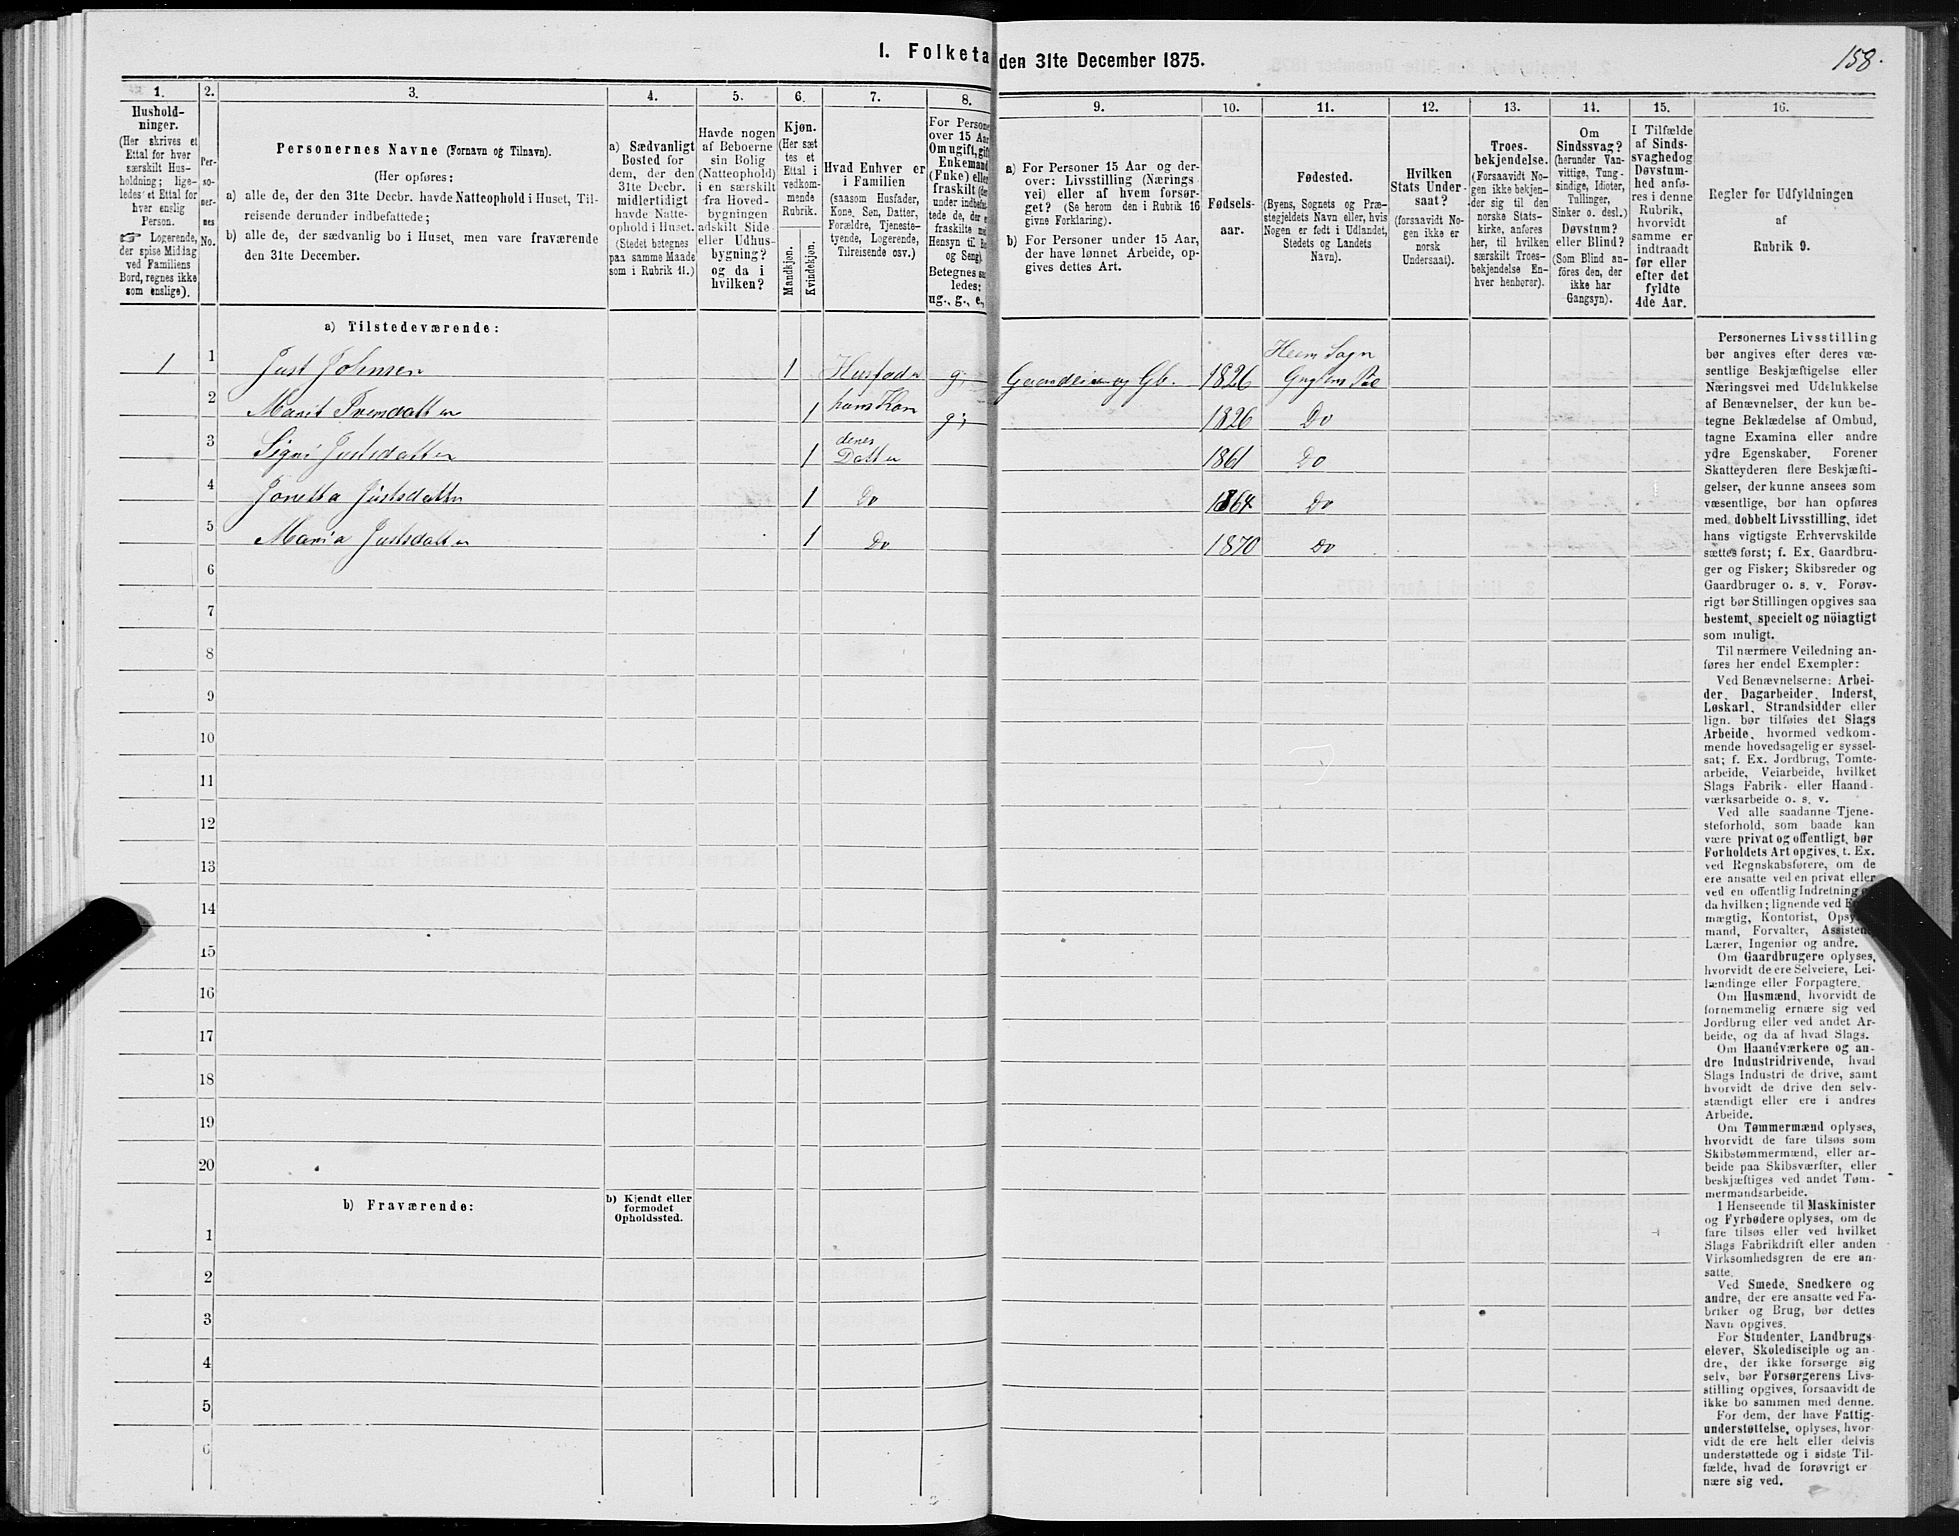 I. Folketæ den 31te December 1875.
158.
1.
Hushold-
ninger.
(Her skrives et
Ettal for hver
særskilt Hus-
holdning; lige-
ledes et Ettal for
hver enslig
Person.
☞ Logerende,
der spise Middag
ved Familiens
Bord, regnes ikke
som enslige).
2.
Per-
so-
ner-
nes
No.
3.
Personernes Navne (Fornavn og Tilnavn).
(Her opføres:
a) alle de, der den 31te Decbr. havde Natteophold i Huset, Til-
reisende derunder indbefattede;
b) alle de, der sædvanlig bo i Huset, men vare fraværende
den 31te December.
4.
a) Sædvanligt
Bosted for
dem, der den
31te Decbr.
midlertidigt
havde Natte-
ophold i Huset.
(Stedet betegnes
paa samme Maade
som i Rubrik 11.)
5.
Havde nogen
af Beboerne
sin Bolig
(Natteophold)
i en særskilt
fra Hoved-
bygningen
adskilt Side-
eller Udhus-
bygning?
og da i
hvilken?
6.
Kjøn.
(Her sæt
tes et
Ettal i
vedkom-
mende
Rubrik.
Mandkjøn.
Kvindekjøn.
7.
Hvad Enhver er
i Familien
(saasom Husfader,
Kone, Søn, Datter,
Forældre, Tjeneste-
tyende, Logerende,
Tilreisende osv.)
8.
For Persone
over 15 Aar
Om ugift, gift
Enkemand
(Enke) eller
fraskilt (der
under indbefat-
tede de, der e
fraskilte med
Hensyn til Bo
og Seng).
Betegnes saa
ledes:
ug., g., e.,
9.
a) For Personer 15 Aar og der-
over: Livsstilling (Nærings
vei) eller af hvem forsør-
get? (Se herom den i Rubrik 16
givne Forklaring).
b) For Personer under 15 Aar,
der have lønnet Arbeide, op-
gives dettes Art.
10.
Fødsels-
aar.
11.
Fødested.
(Byens, Sognets og Præ-
stegjeldets Navn eller, hvis
Nogen er født i Udlandet,
Stedets og Landets
Navn).
12.
Hvilken
Stats Under-
saat?
(forsaavidt No-
gen ikke er
norsk
Undersaat).
13.
Troes-
bekjendelse.
(Forsaavidt No-
gen ikke bekjen-
der sig til den
norske Stats-
kirke, anføres
her, til hvilken
særskilt Troes-
bekjendelse En-
hver henhører).
14.
Om
Sindssvag?
(herunder Van-
vittige, Tung-
sindige, Idioter,
Tullinger,
Sinker o. desl.)
Døvstum?
eller Blind?
(Som Blind an-
føres den, der
ikke har
Gangsyn).
15.
I Tilfælde
af Sinds-
svaghed og
Døvstum-
hed anfø-
res i denne
Rubrik,
hvorvidt
samme er
indtraadt
før eller
efter det
fyldte
4de Aar.
16.
Regler for Udfyldningen
af
Rubrik 9.
a) Tilstedeværende:
1 1 Just Johnsen 1 Husfader g; Gaardeier og Gb. 1826 Heim Sogn
2 Marit 1 hans Kone g; 1826 Do
3 Signi Justsdatter 1 deres Datter 1861 Do
4 Jonetta Justsdatter 1 Do 1864 Do
5 Maria Justsdatter 1 Do 1870 Do
6
7
8
9
10
11
12
13
14
15
16
17
18
19
20
b) Fraværende:
b) Kjendt eller
formodet
Opholdssted.
1
2
3
4
5
6
Personernes Livsstilling
bør angives efter deres væ-
sentlige Beskjæftigelse eller
Næringsvei med Udelukkelse
af Benævnelser, der kun be-
tegne Beklædelse af Ombud,
tagne Examina eller andre
ydre Egenskaber. Forener
Skatteyderen flere Beskjæfti-
gelser, der kunne ansees som
væsentlige, bør han opføres
med dobbelt Livsstilling, idet
hans vigtigste Erhvervskilde
sættes først; f. Ex. Gaardbru-
ger og Fisker; Skibsreder og
Gaardbruger o. s. v. Forøv-
rigt bør Stillingen opgives saa
bestemt, specielt og nöiagtigt
som muligt.
Til nærmere Veiledning an-
føres her endel Exempler:
Ved Benævnelserne: Arbei-
der, Dagarbeider, Inderst,
Løskarl, Strandsidder eller
lign. bør tilføies det Slags
Arbeide, hvormed vedkom-
mende hovedsagelig er syssel-
sat; f. Ex. Jordbrug, Tomte-
arbeide, Veiarbeide, hvilket
Slags Fabrik- eller Haand-
værksarbeide o. s. v.
Ved alle saadanne Tjene-
steforhold, som baade kan
være privat og offentligt, bør
Forholdets Art opgives, t. Ex.
ved Regnskabsførere, om de
ere ansatte ved en privat eller
ved en offentlig Indretning
da hvilken; lignende ved
mægtig, Kontorist, Opsy
mand, Forvalter, Assistent,
Lærer, Ingeniør og andre.
Om Gaardbrugere oplyses,
hvorvidt de ere Selveiere, Lei-
lændinge eller Forpagtere.
Om Husmænd, hvorvidt de
fornemmelig ernære sig ved
Jordbrug eller ved andet Ar-
beide, og da af hvad Slags.
Om Haandværkere og an-
dre Industridrivende, hvad
Slags Industri de drive, samt
hvorvidt de drive den selv-
stændigt eller ere i andres
Arbeide.
Om Tømmermænd oplyses,
hvorvidt de fare tilsøs som
Skibstømmermænd, eller ar-
beide paa Skibsværfter, eller
beskjæftiges ved andet Tøm-
mermandsarbeide.
I Henseende til Maskinister
og Fyrbødere oplyses, om de
fare tilsøs eller ved hvilket
Slags Fabrikdrift eller anden
Virksomhedsgren de ere an-
satte.
Ved Smede, Snedkere og
andre, der ere ansatte ved Fa-
briker og Brug, bør dettes
Navn opgives.
For Studenter, Landbrugs-
elever, Skoledisciple og an-
dre, der ikke forsørge sig
selv, bør Forsørgerens Livs-
stilling opgives, forsaavidt de
ikke bo sammen med denne.
For dem, der have Fattig-
understøttelse, oplyses, hvor-
vidt de ere helt eller delvis
understøttede og i sidste Til-
fælde, hvad de forøvrigt er
nære sig ved.